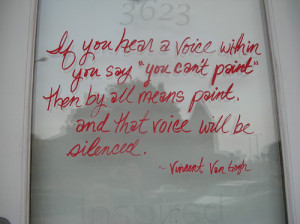 3623
If you hear a voice within
you say "you can't paint"
then by all means paint.
and that voice will be
silenced.
~ Vincent Van Gogh